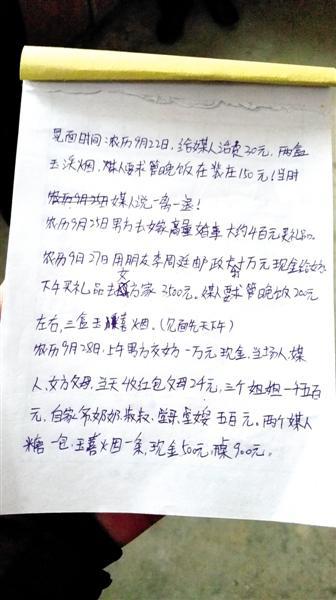 见面时间:农历9月22日,给媒人治费20元,两盒
玉溪烟,媒人要求管晚饭在装在150元(当时
农历9月25日媒人说一离一退!
农历9月25日男方去嫁商量婚事大约4百元买礼品。
农历9月27日用朋友李周庭邮政卡取1万元现金给女方
下午买礼品去女方家3500元。媒人要求管晚饭200元
左右,三盒玉喜烟。(见面先天下午)
农历9月28日,上午男方交女方一万元现金,当场人,媒
人、女方父母,当天4收红包父母24元,三个姐姐一千五百
元,自家爷奶奶叔叔、堂哥、堂嫂五百元。两个媒人
糖一包、玉喜烟一条,现金50元,桌900元。